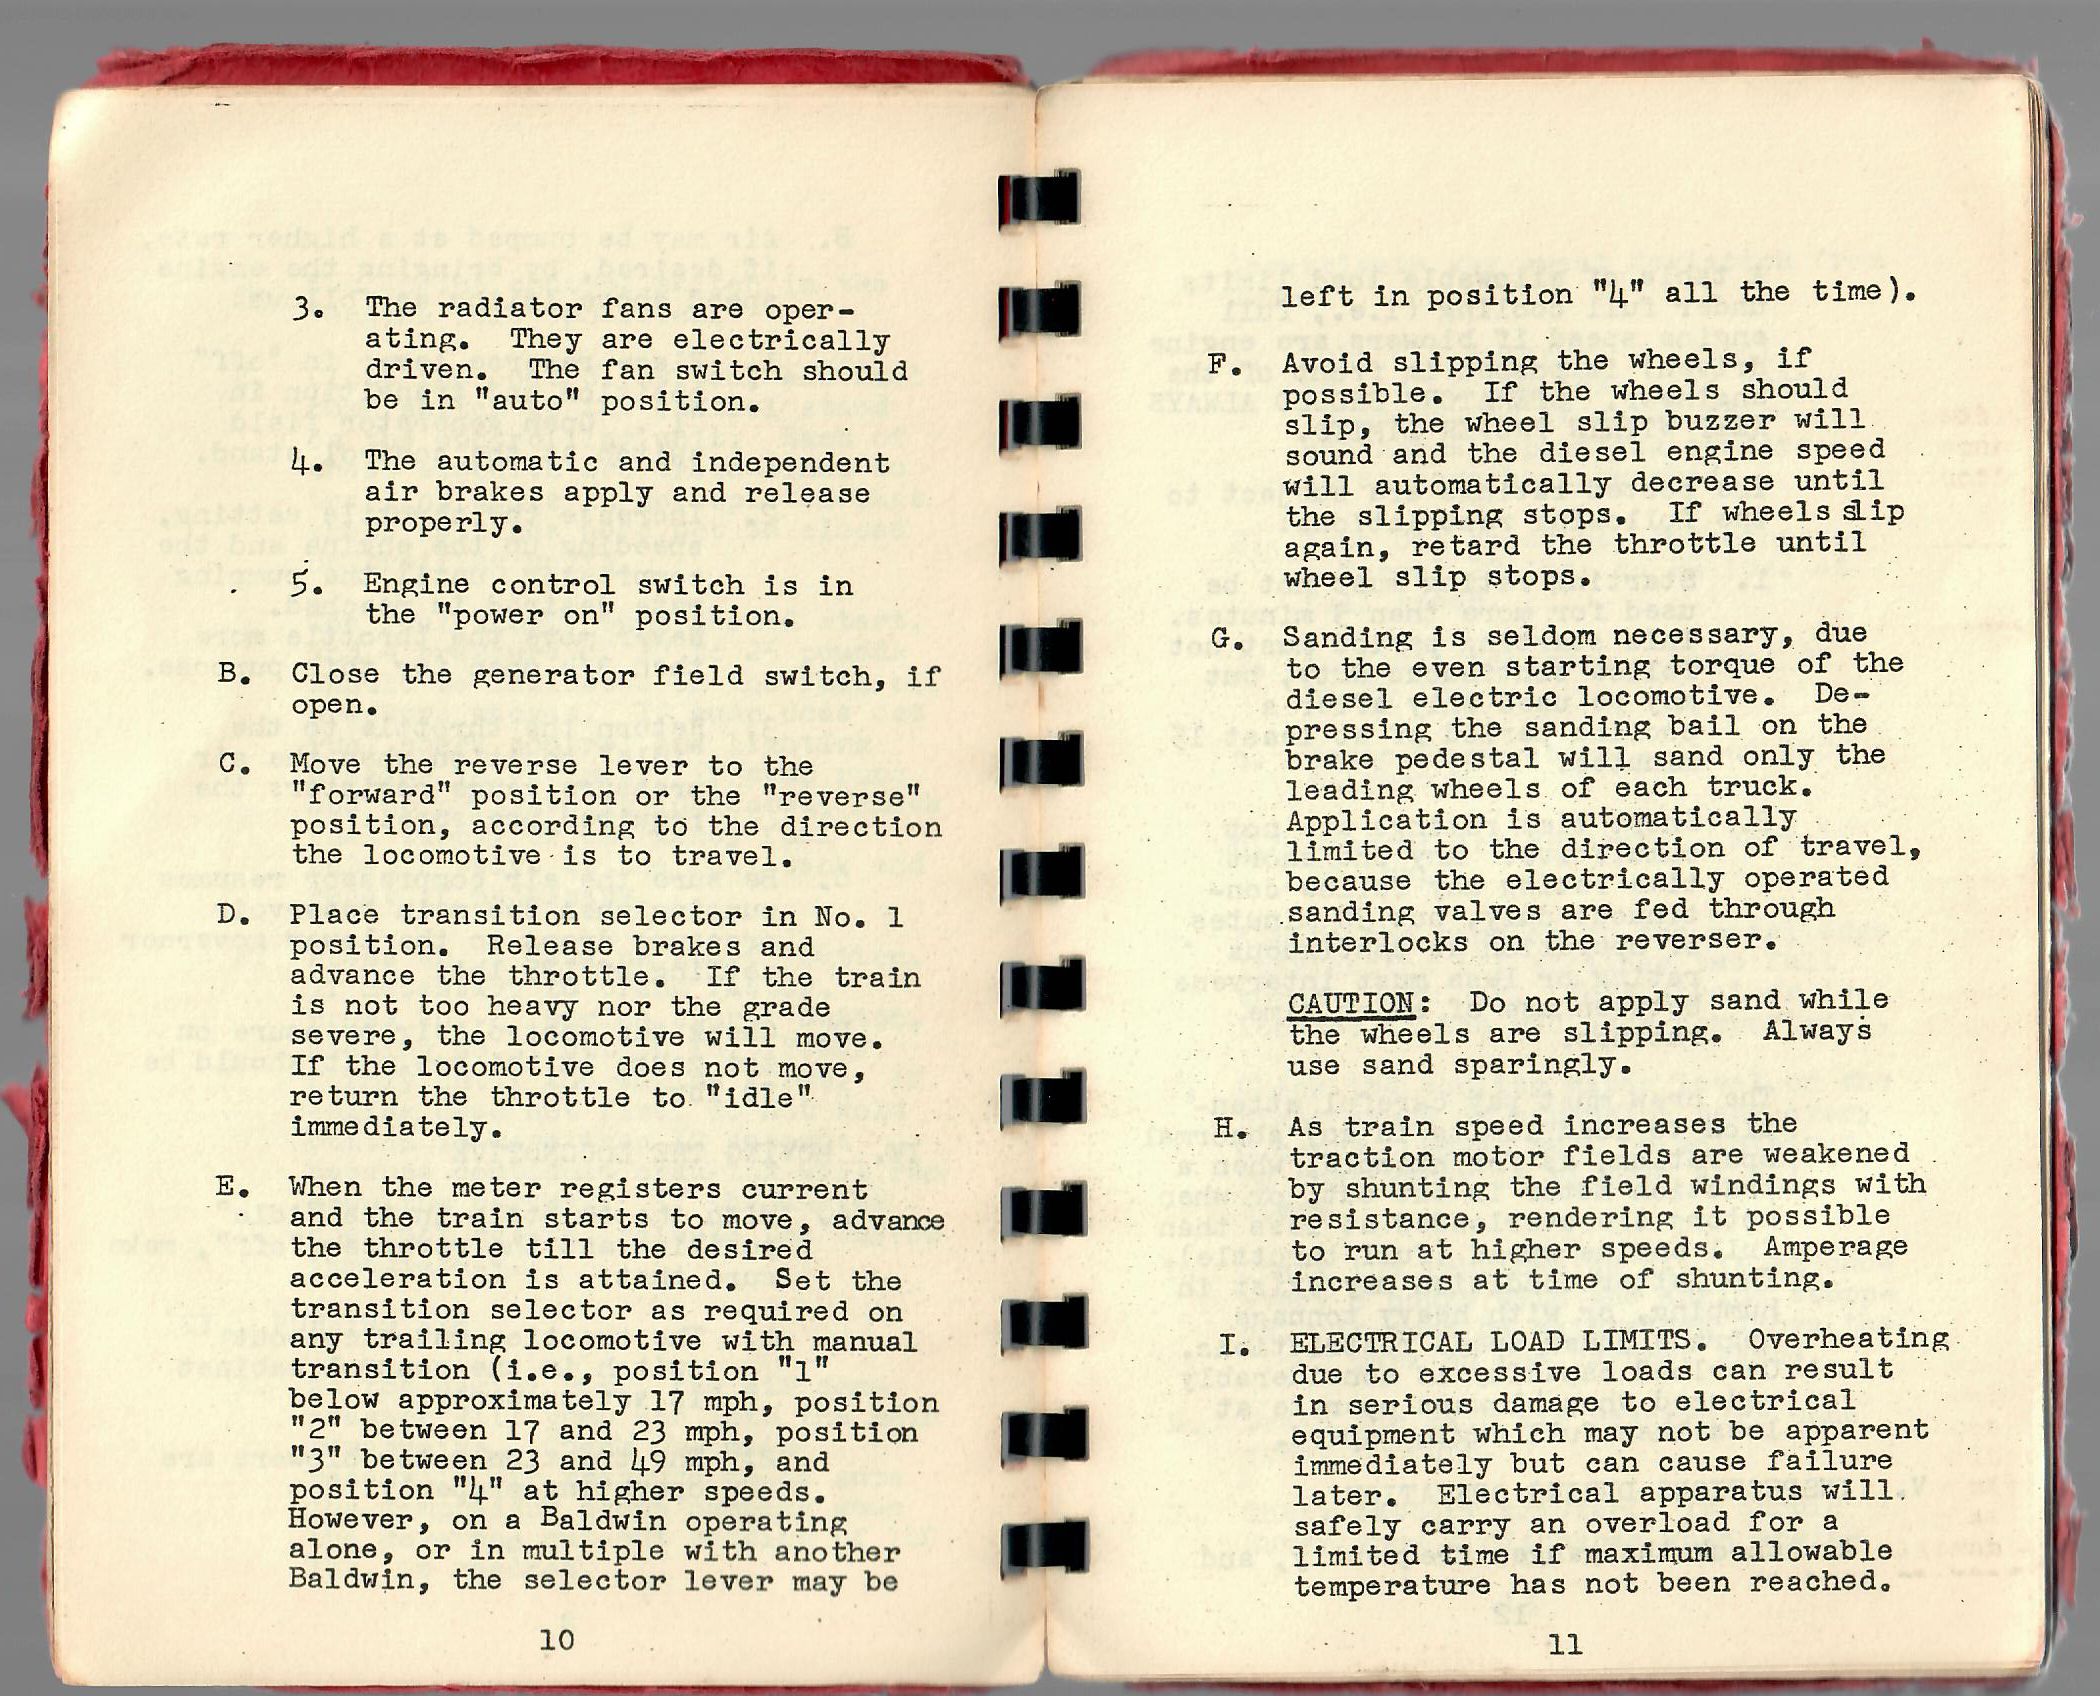 3. The radiator fans are oper-
ating. They are electrically
driven. The fan switch should
be in "auto" position.
4. The automatic and independent
air brakes apply and release
properly.
5. Engine control switch is in
the "power on" position.
B. Close the generator field switch, if
open.
C. Move the reverse lever to the
"forward" position or the "reverse"
position, according to the direction
the locomotive is to travel.
D. Place transition selector in No. 1
position. Release brakes and
advance the throttle. If the train
is not too heavy nor the grade
severe, the locomotive will move.
If the locomotive does not move,
return the throttle to "idle"
immediately.
E. When the meter registers current
and the train starts to move, advance
the throttle till the desired
acceleration is attained. Set the
transition selector as required on
any trailing locomotive with manual
transition (i.e., position "1"
below approximately 17 mph, position
"2" between 17 and 23 mph, position
"3" between 23 and 49 mph, and
position "4" at higher speeds.
However, on a Baldwin operating
alone, or in multiple with another
Baldwin, the selector lever may be
10
left in position "4" all the time).
F. Avoid slipping the wheels, if
possible. If the wheels should
slip, the wheel slip buzzer will
sound and the diesel engine speed
will automatically decrease until
the slipping stops. If wheels slip
again, retard the throttle until
wheel slip stops.
G. Sanding is seldom necessary, due
to the even starting torque of the
diesel electric locomotive. De-
pressing the sanding bail on the
brake pedestal will sand only the
leading wheels of each truck.
Application is automatically
limited to the direction of travel,
because the electrically operated
sanding valves are fed through
interlocks on the reverser.
CAUTION: Do not apply sand while
the wheels are slipping. Always
use sand sparingly.
H. As train speed increases the
traction motor fields are weakened
by shunting the field windings with
resistance, rendering it possible
to run at higher speeds. Amperage
increases at time of shunting.
I. ELECTRICAL LOAD LIMITS. Overheating
due to excessive loads can result
in serious damage to electrical
equipment which may not be apparent
immediately but can cause failure
later. Electrical apparatus will
safely carry an overload for a
limited time if maximum allowable
temperature has not been reached.
11